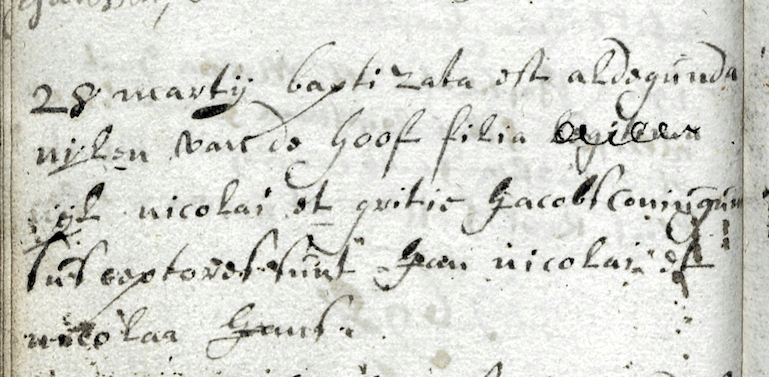 28 martij baptizata est aldegunda
nijlen van de hoof filia
nicolai et gritie Jacobs coniugum
susceptores sunt Jan nicolai et
nicolaa Jans.